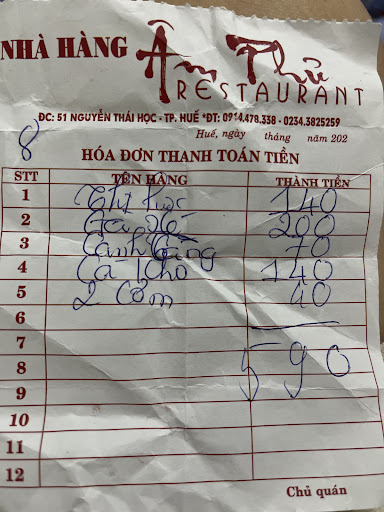 NHÀ HÀNG Âm Thủ
RESTAURANT
ĐC: 51 NGUYỄN THÁI HỌC - TP. HUẾ *ĐT: 0914.478.338 - 0234.3825259
Huế, ngày tháng năm 202
8
HÓA ĐƠN THANH TOÁN TIỀN
STT TÊN HÀNG THÀNH TIỀN
1 140
2 200
3 Canh 70
4 Cá Kho 140
5 2 Cơm 40
6
7
8 590
9
10
11
12
Chủ quán